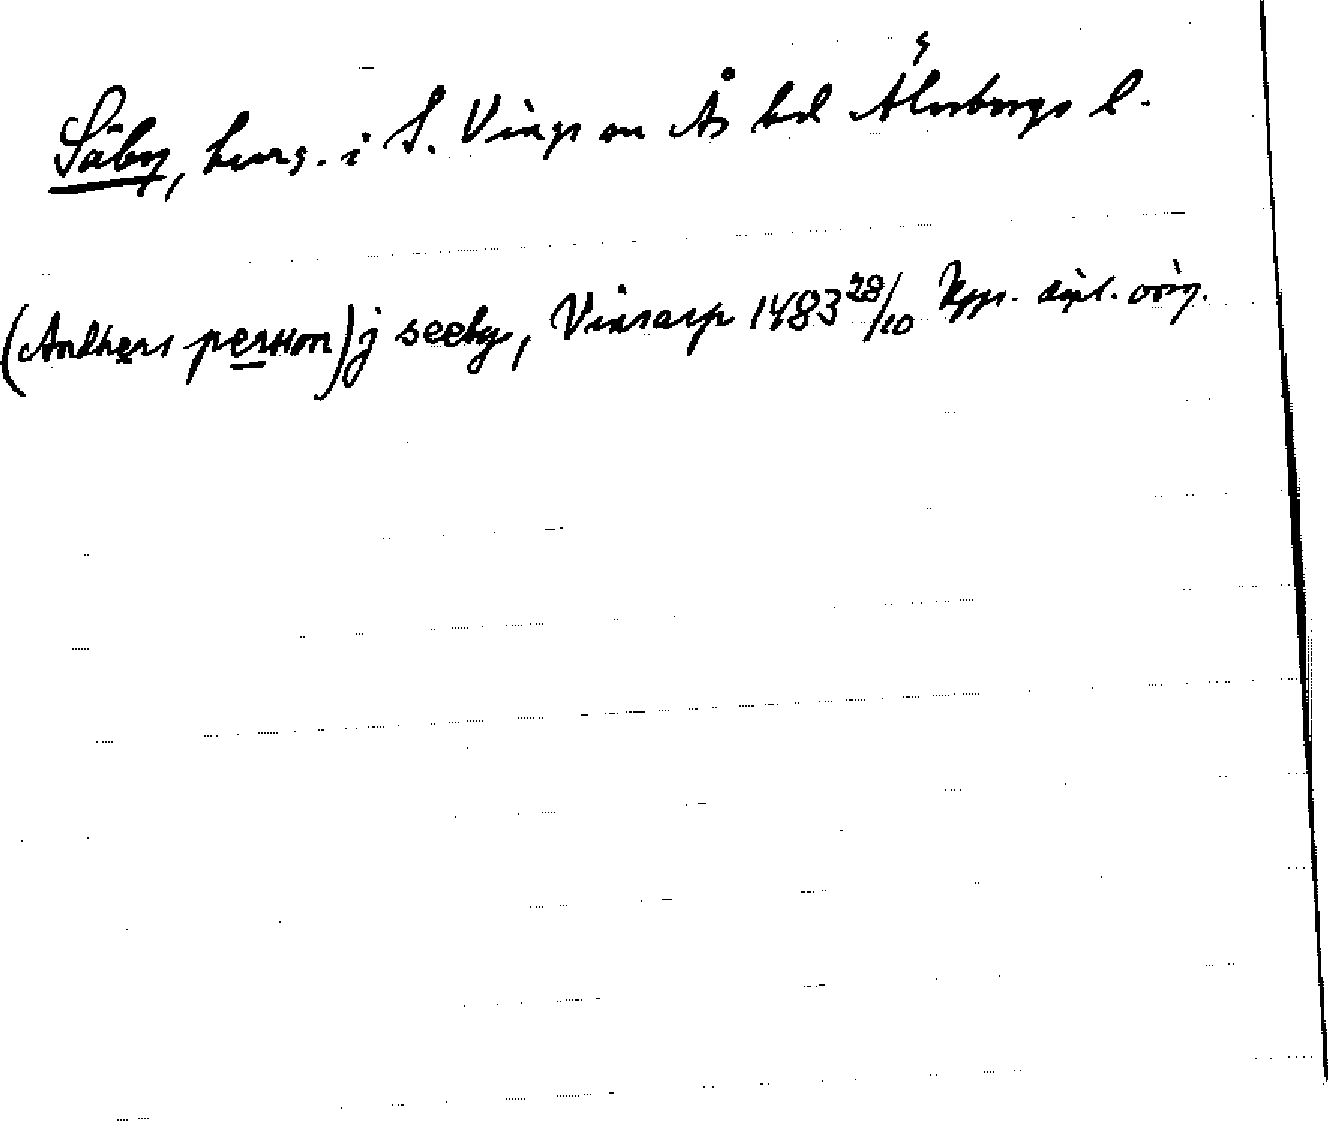 Säby, herrg. i S. Vings sn Ås hd Älvsborgs l.
(Andhers persson) j seeby, Vinsarp 1483 28/10 Upps. dipl. orig.